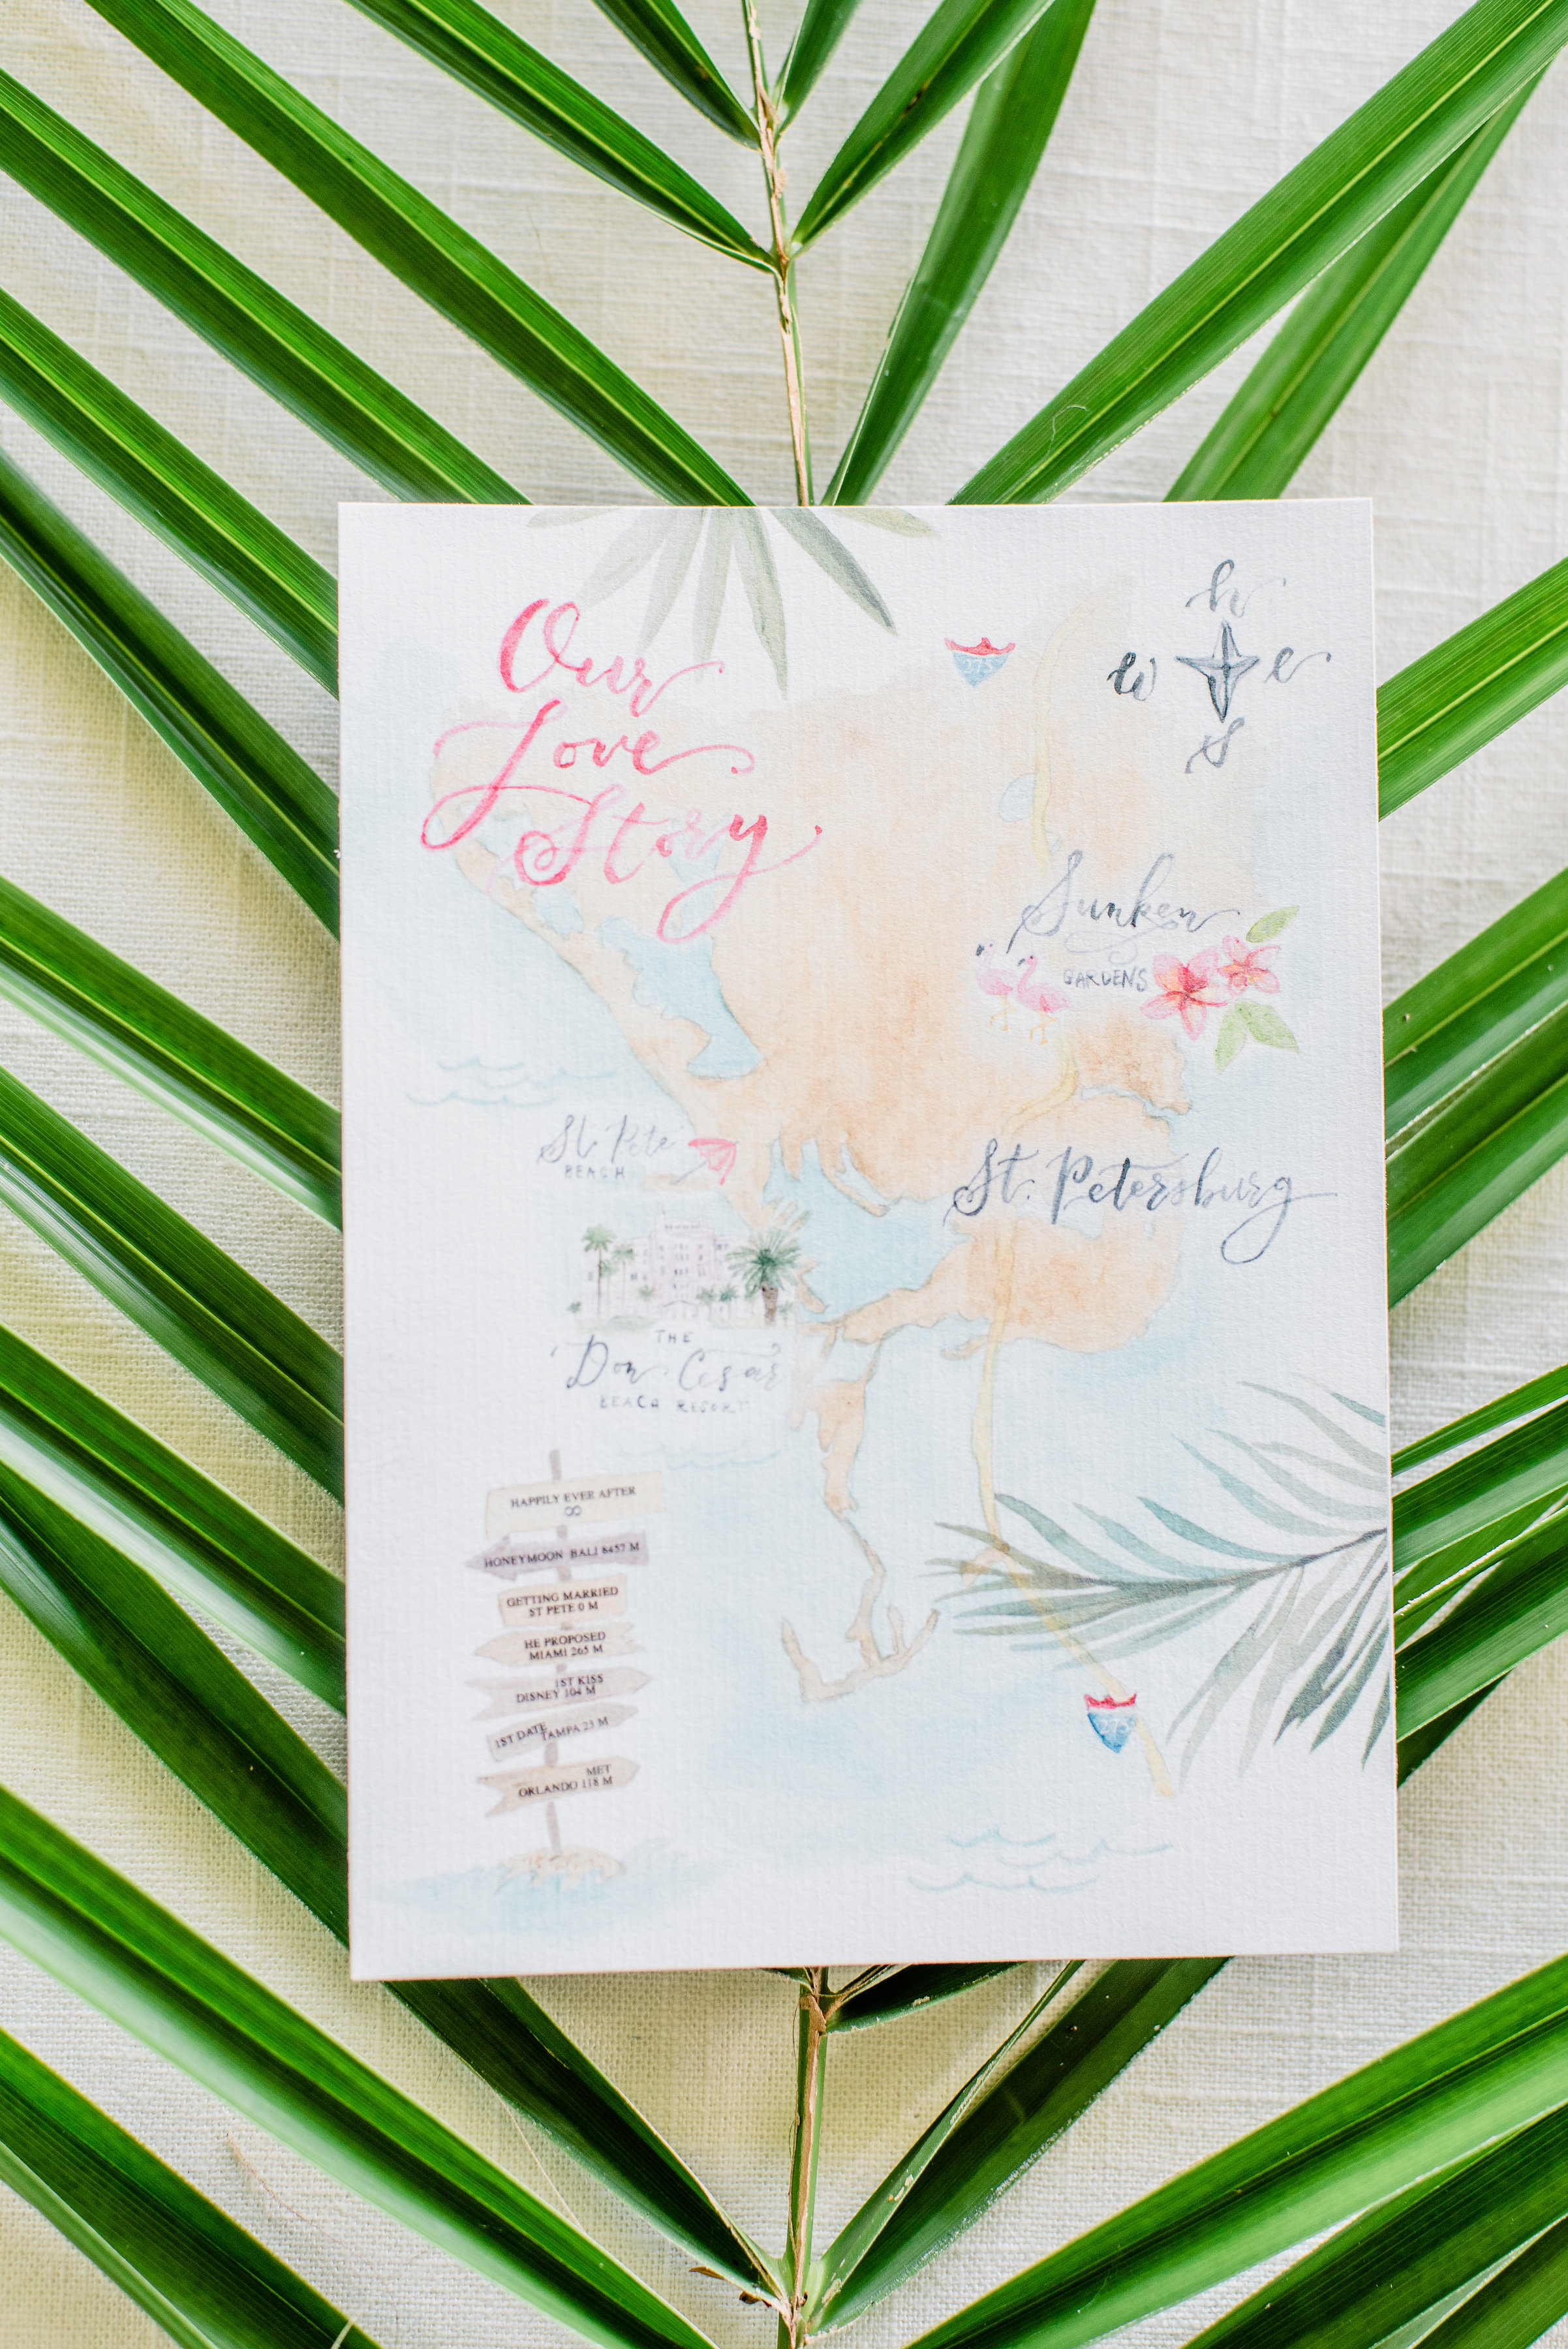 Our
Love
Story
275
n
w e
s
Sunken
GARDENS
St. Pete
BEACH
St. Petersburg
THE
Don Cesar
BEACH RESORT
HAPPILY EVER AFTER
∞
HONEYMOON BALI 8457 M
GETTING MARRIED
ST PETE 0 M
HE PROPOSED
MIAMI 265 M
1ST KISS
DISNEY 104 M
1ST DATE TAMPA 23 M
MET
ORLANDO 118 M
275